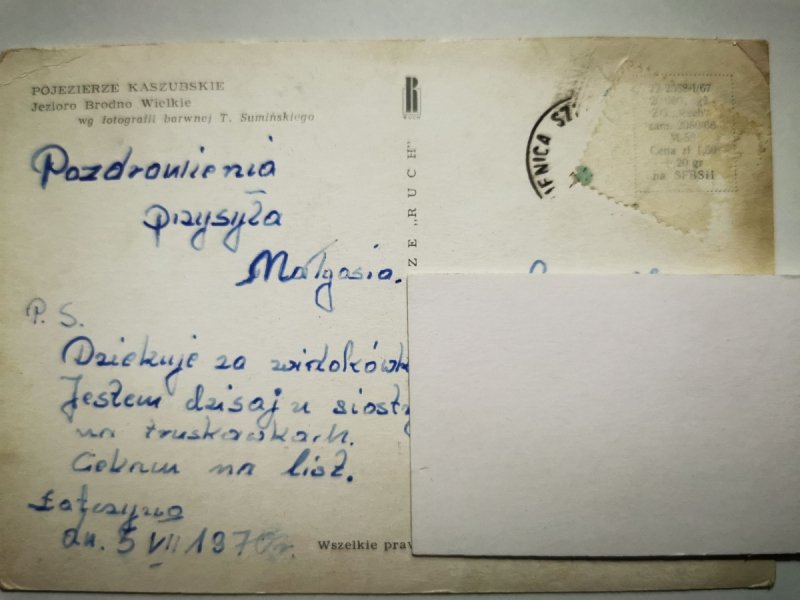 POJEZIERZE KASZUBSKIE
Jezioro Brodno Wielkie
wg fotografii barwnej T. Sumińskiego
Pozdrowienia
przysyła
Małgosia.
P. S.
Dziekuje za widokówk
Jestem dzisaj u siostry
na truskawkach.
Czekam na list.
dn. 5 VII 1970r.
R
RUCH
ZE „RUCH"
Wszelkie praw
Cena zł 1,50
+ 20 gr
na SFBSiI